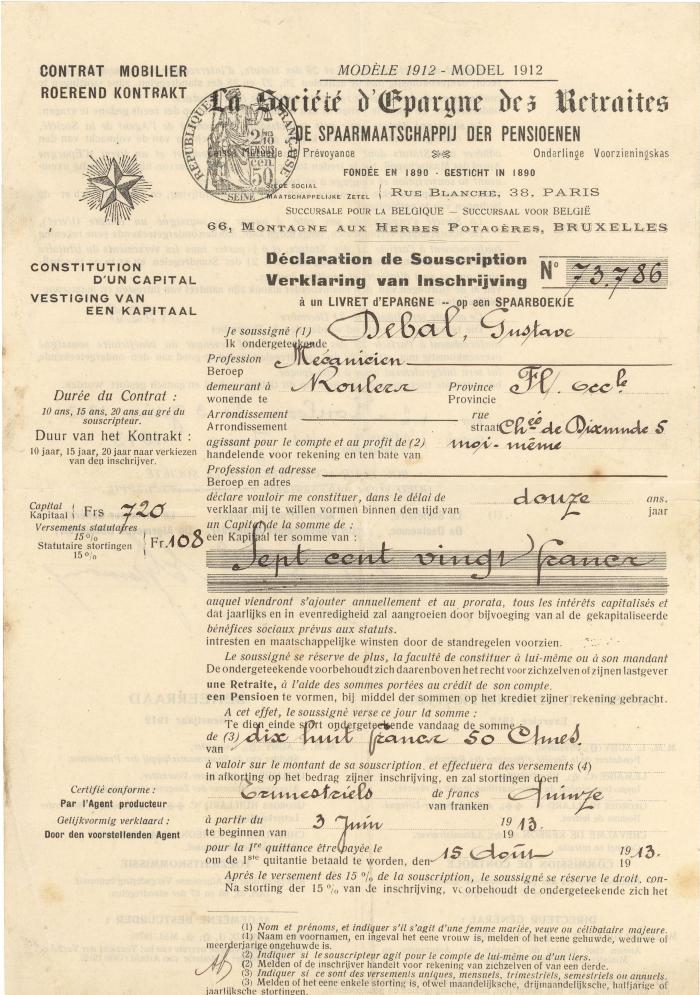 CONTRAT MOBILIER
ROEREND KONTRAKT
MODÈLE 1912 - MODEL 1912
La Société d'Epargne des Retraites
DE SPAARMAATSCHAPPIJ DER PENSIOENEN
Prévoyance Onderlinge Voorzieningskas
FONDÉE EN 1890 - GESTICHT IN 1890
RÉPUBLIQUE FRANÇAISE
50
SEINE
SIÈGE SOCIAL
MAATSCHAPPELIJKE ZETEL
RUE BLANCHE, 38, PARIS
SUCCURSALE POUR LA BELGIQUE — SUCCURSAAL VOOR BELGIË
66, MONTAGNE AUX HERBES POTAGÈRES, BRUXELLES
CONSTITUTION
D'UN CAPITAL
VESTIGING VAN
EEN KAPITAAL
Déclaration de Souscription
Verklaring van Inschrijving
N° 73.786
à un LIVRET d'EPARGNE -- op een SPAARBOEKJE
Je soussigné (1) Debal, Gustave
Ik ondergeteekende
Profession Mécanicien
Beroep
demeurant à Roulers Province Fl. occle
wonende te Provincie
Arrondissement rue
Arrondissement straat Chéé de Dixmude 5
agissant pour le compte et au profit de (2) moi-même
handelende voor rekening en ten bate van
Profession et adresse
Beroep en adres
Durée du Contrat :
10 ans, 15 ans, 20 ans au gré du
souscripteur.
Duur van het Kontrakt :
10 jaar, 15 jaar, 20 jaar naar verkiezen
van den inschrijver.
déclare vouloir me constituer, dans le délai de douze ans.
verklaar mij te willen vormen binnen den tijd van jaar
Capital
Kapitaal Frs 720
Versements statutaires
15 %
Statutaire stortingen
15 %
Fr. 108
un Capital de la somme de :
een Kapitaal ter somme van :
Sept cent vingt francs
auquel viendront s'ajouter annuellement et au prorata, tous les intérêts capitalisés et
dat jaarlijks en in evenredigheid zal aangroeien door bijvoeging van al de gekapitaliseerde
bénéfices sociaux prévus aux statuts.
intresten en maatschappelijke winsten door de standregelen voorzien.
Le soussigné se réserve de plus, la faculté de constituer à lui-même ou à son mandant
De ondergeteekende voorbehoudt zich daarenboven het recht voor zichzelven of zijnen lastgever
une Retraite, à l'aide des sommes portées au crédit de son compte.
een Pensioen te vormen, bij middel der sommen op het krediet zijner rekening gebracht.
A cet effet, le soussigné verse ce jour la somme :
Te dien einde stort ondergeteekende vandaag de somme
de (3) dix huit francs 50 Ctmes.
van
à valoir sur le montant de sa souscription, et effectuera des versements (4)
in afkorting op het bedrag zijner inschrijving, en zal stortingen doen
Trimestriels de francs quinze
van franken
Certifié conforme :
Par l'Agent producteur
Gelijkvormig verklaard :
Door den voorstellenden Agent
à partir du 3 Juin 1913.
te beginnen van 19
pour la 1re quittance être payée le 15 Août 1913.
om de 1ste quitantie betaald te worden, den 19
Après le versement des 15 % de la souscription, le soussigné se réserve le droit, con-
Na storting der 15 % van de inschrijving, voorbehoudt de ondergeteekende zich het
(1) Nom et prénoms, et indiquer s'il s'agit d'une femme mariée, veuve ou célibataire majeure.
(1) Naam en voornamen, en ingeval het eene vrouw is, melden of het eene gehuwde, weduwe of
meerderjarige ongehuwde is.
(2) Indiquer si le souscripteur agit pour le compte de lui-même ou d'un tiers.
(2) Melden of de inschrijver handelt voor rekening van zichzelven of van een derde.
(3) Indiquer si ce sont des versements uniques, mensuels, trimestriels, semestriels ou annuels.
(3) Melden of het eene enkele storting is, oftwel maandelijksche, drijmaandelijksche, halfjarige of
jaarlijksche stortingen.